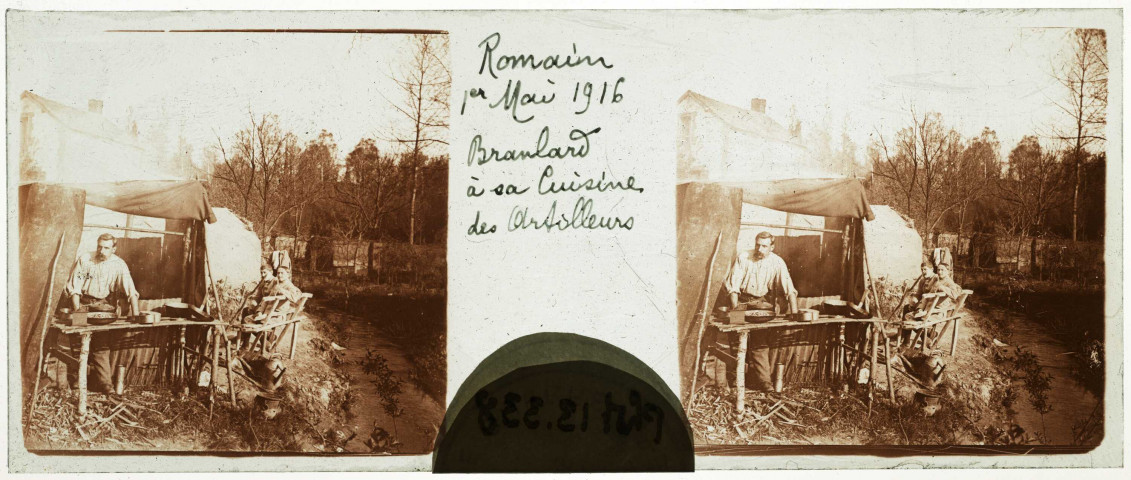 Romain
1er Mai 1916
Branlard
à sa Cuisine
des Artilleurs
PhM 13.338